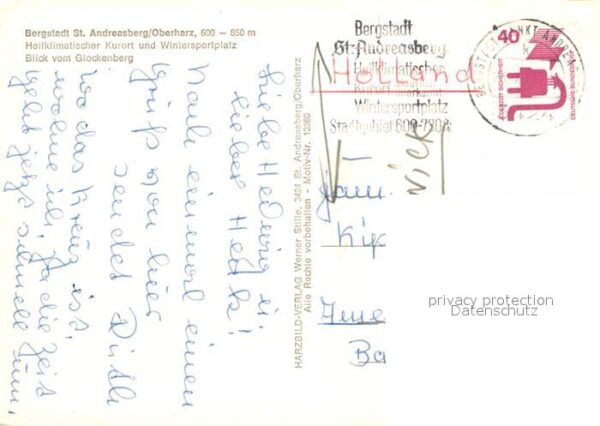 Bergstadt St. Andreasberg/Oberharz, 600 – 850 m
Heilklimatischer Kurort und Wintersportplatz
Blick vom Glockenberg
Liebe Hedwig u.
lieber Heik!
Noch einmal einen
Gruß von hier
sendet Dir
Wo das Kreuz ist,
wohne ich. Ja die Zeit
geht jetzt schnell rum.
HARZBILD-VERLAG Werner Stille, 3424 St. Andreasberg/Oberharz
Alle Rechte vorbehalten - Motiv-Nr. 13360
Bergstadt
St. Andreasberg
Heilklimatischer
Kurort
Wintersportplatz
Stadtgebiet 600-
Holland
40
DEUTSCHE BUNDESPOST
Fam.
Ba
privacy protection
Datenschutz